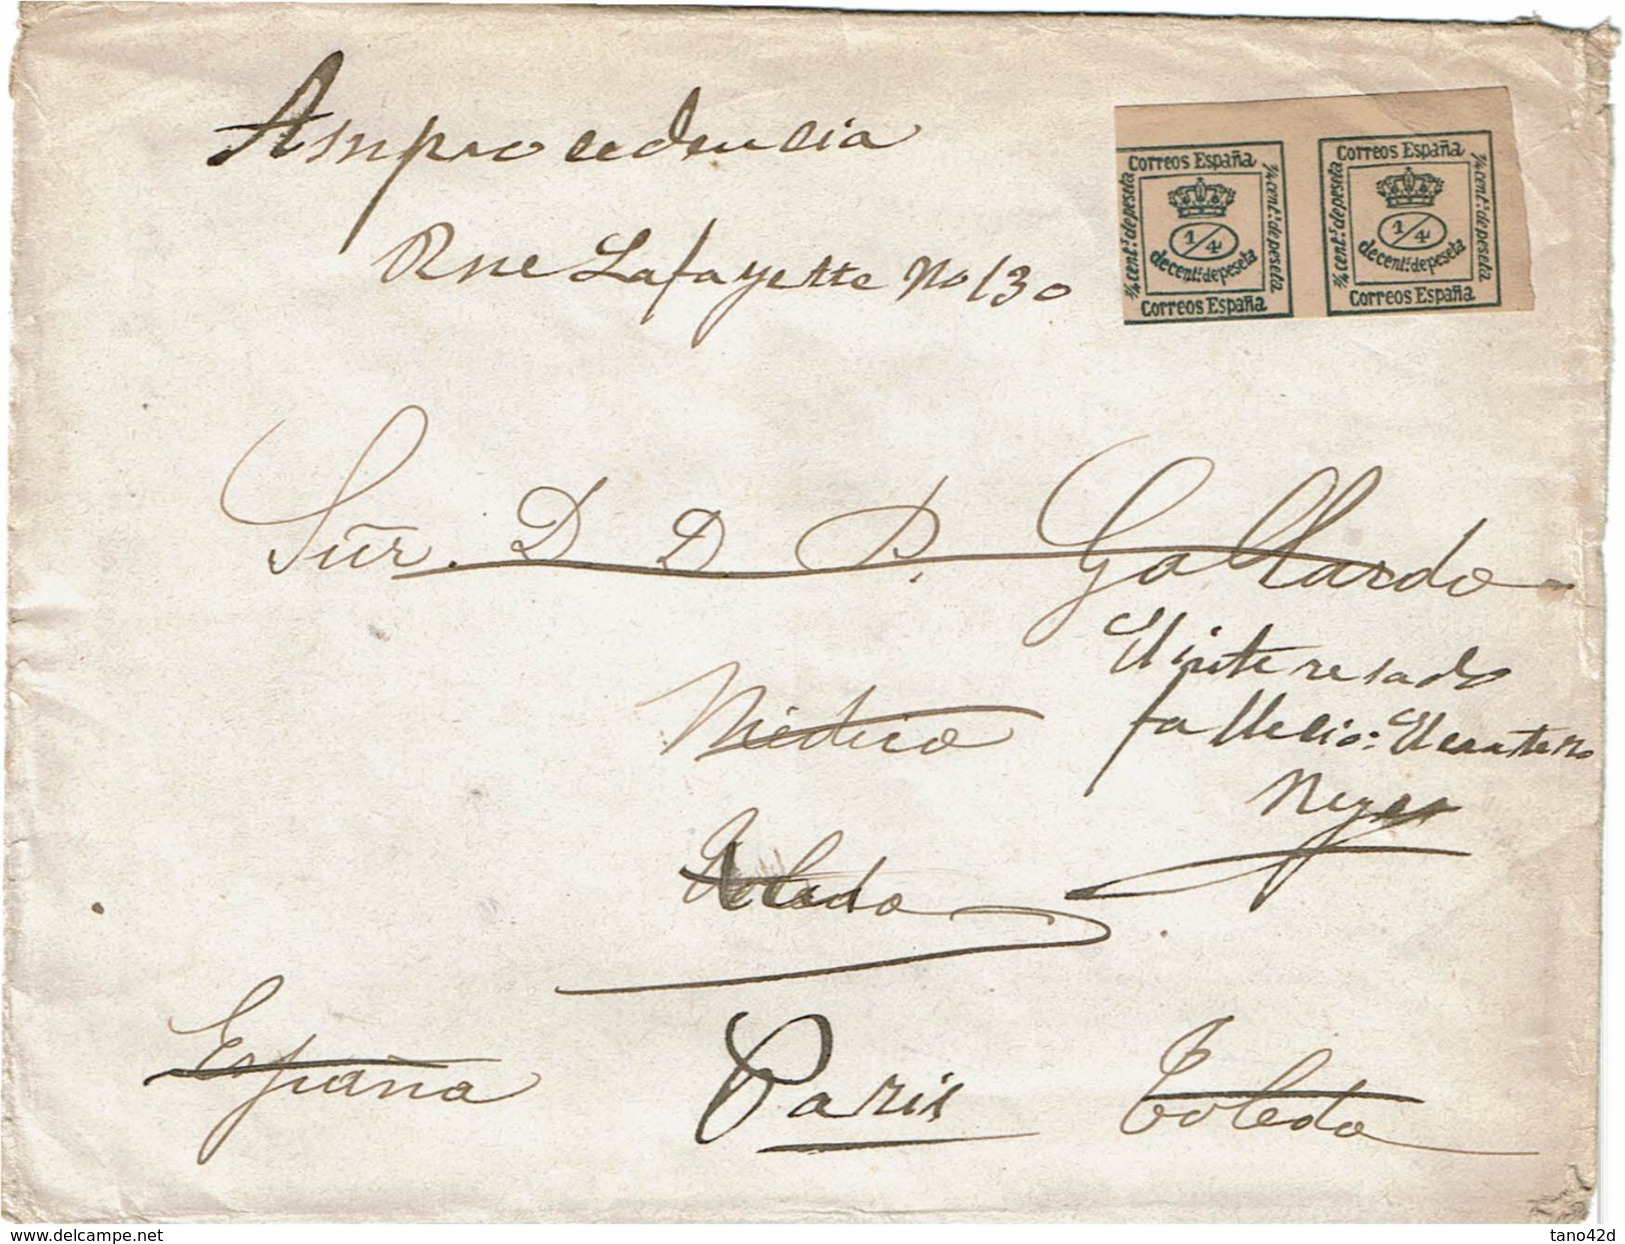 A su procedencia
Rue Lafayette No 130
Correos España
¼ cent.º de peseta
1/4
de cent.º de peseta
¼ cent.º de peseta
Correos España
Correos España
¼ cent.º de peseta
1/4
de cent.º de peseta
¼ cent.º de peseta
Correos España
Señr. D D. P. Gallardo
El interesado
fallecio: El cartero
Reyes
Médico
Toledo
España
Paris
Toledo
delcampe.net
tano42d